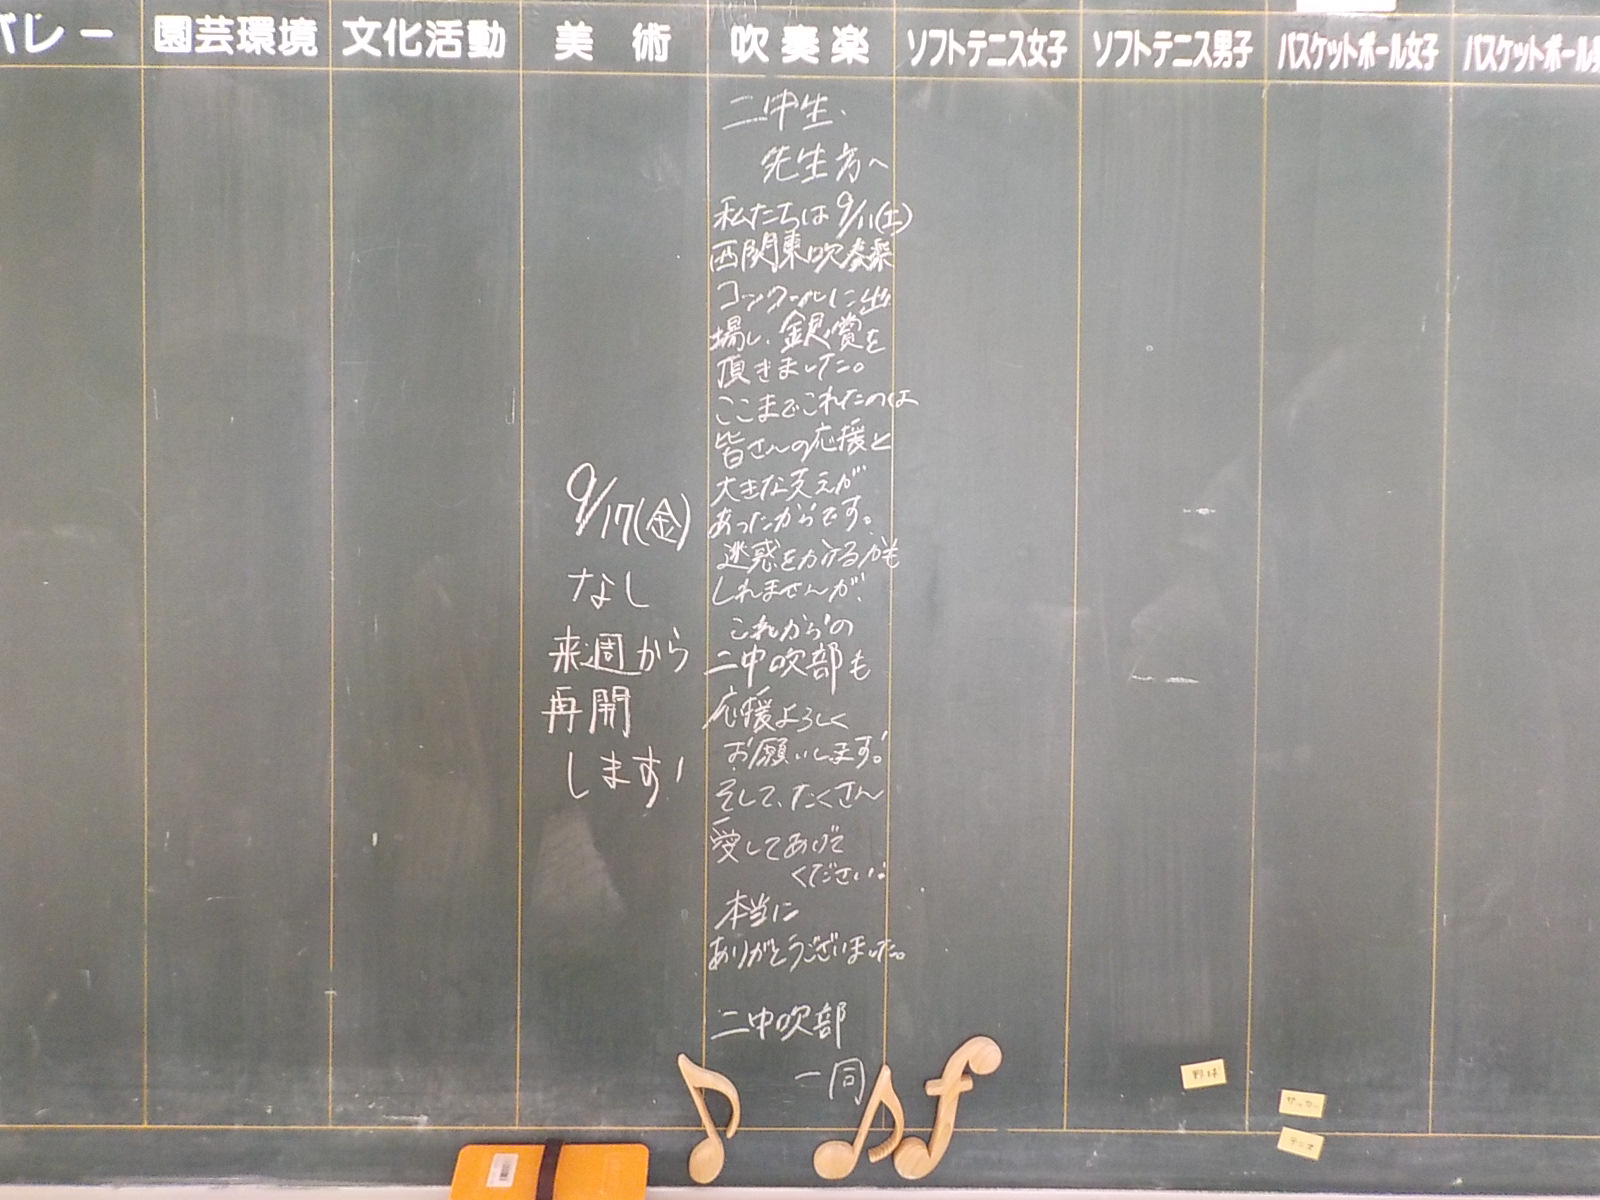 バレー
園芸環境
文化活動
美術
吹奏楽
ソフトテニス女子
ソフトテニス男子
バスケットボール女子
バスケットボール男
9/17(金)
なし
来週から
再開
します!
二中生、
先生方へ
私たちは9/11(土)
西関東吹奏楽
コンクールに出
場し、銀賞を
頂きました。
ここまでこれたのは
皆さんの応援と
大きな支えが
あったからです。
迷惑をかけるかも
しれませんが、
これからの
二中吹部も
応援よろしく
お願いします。
そして、たくさん
愛してあげて
ください!
本当に
ありがとうございました。
二中吹部
一同
野球
サッカー
テニス